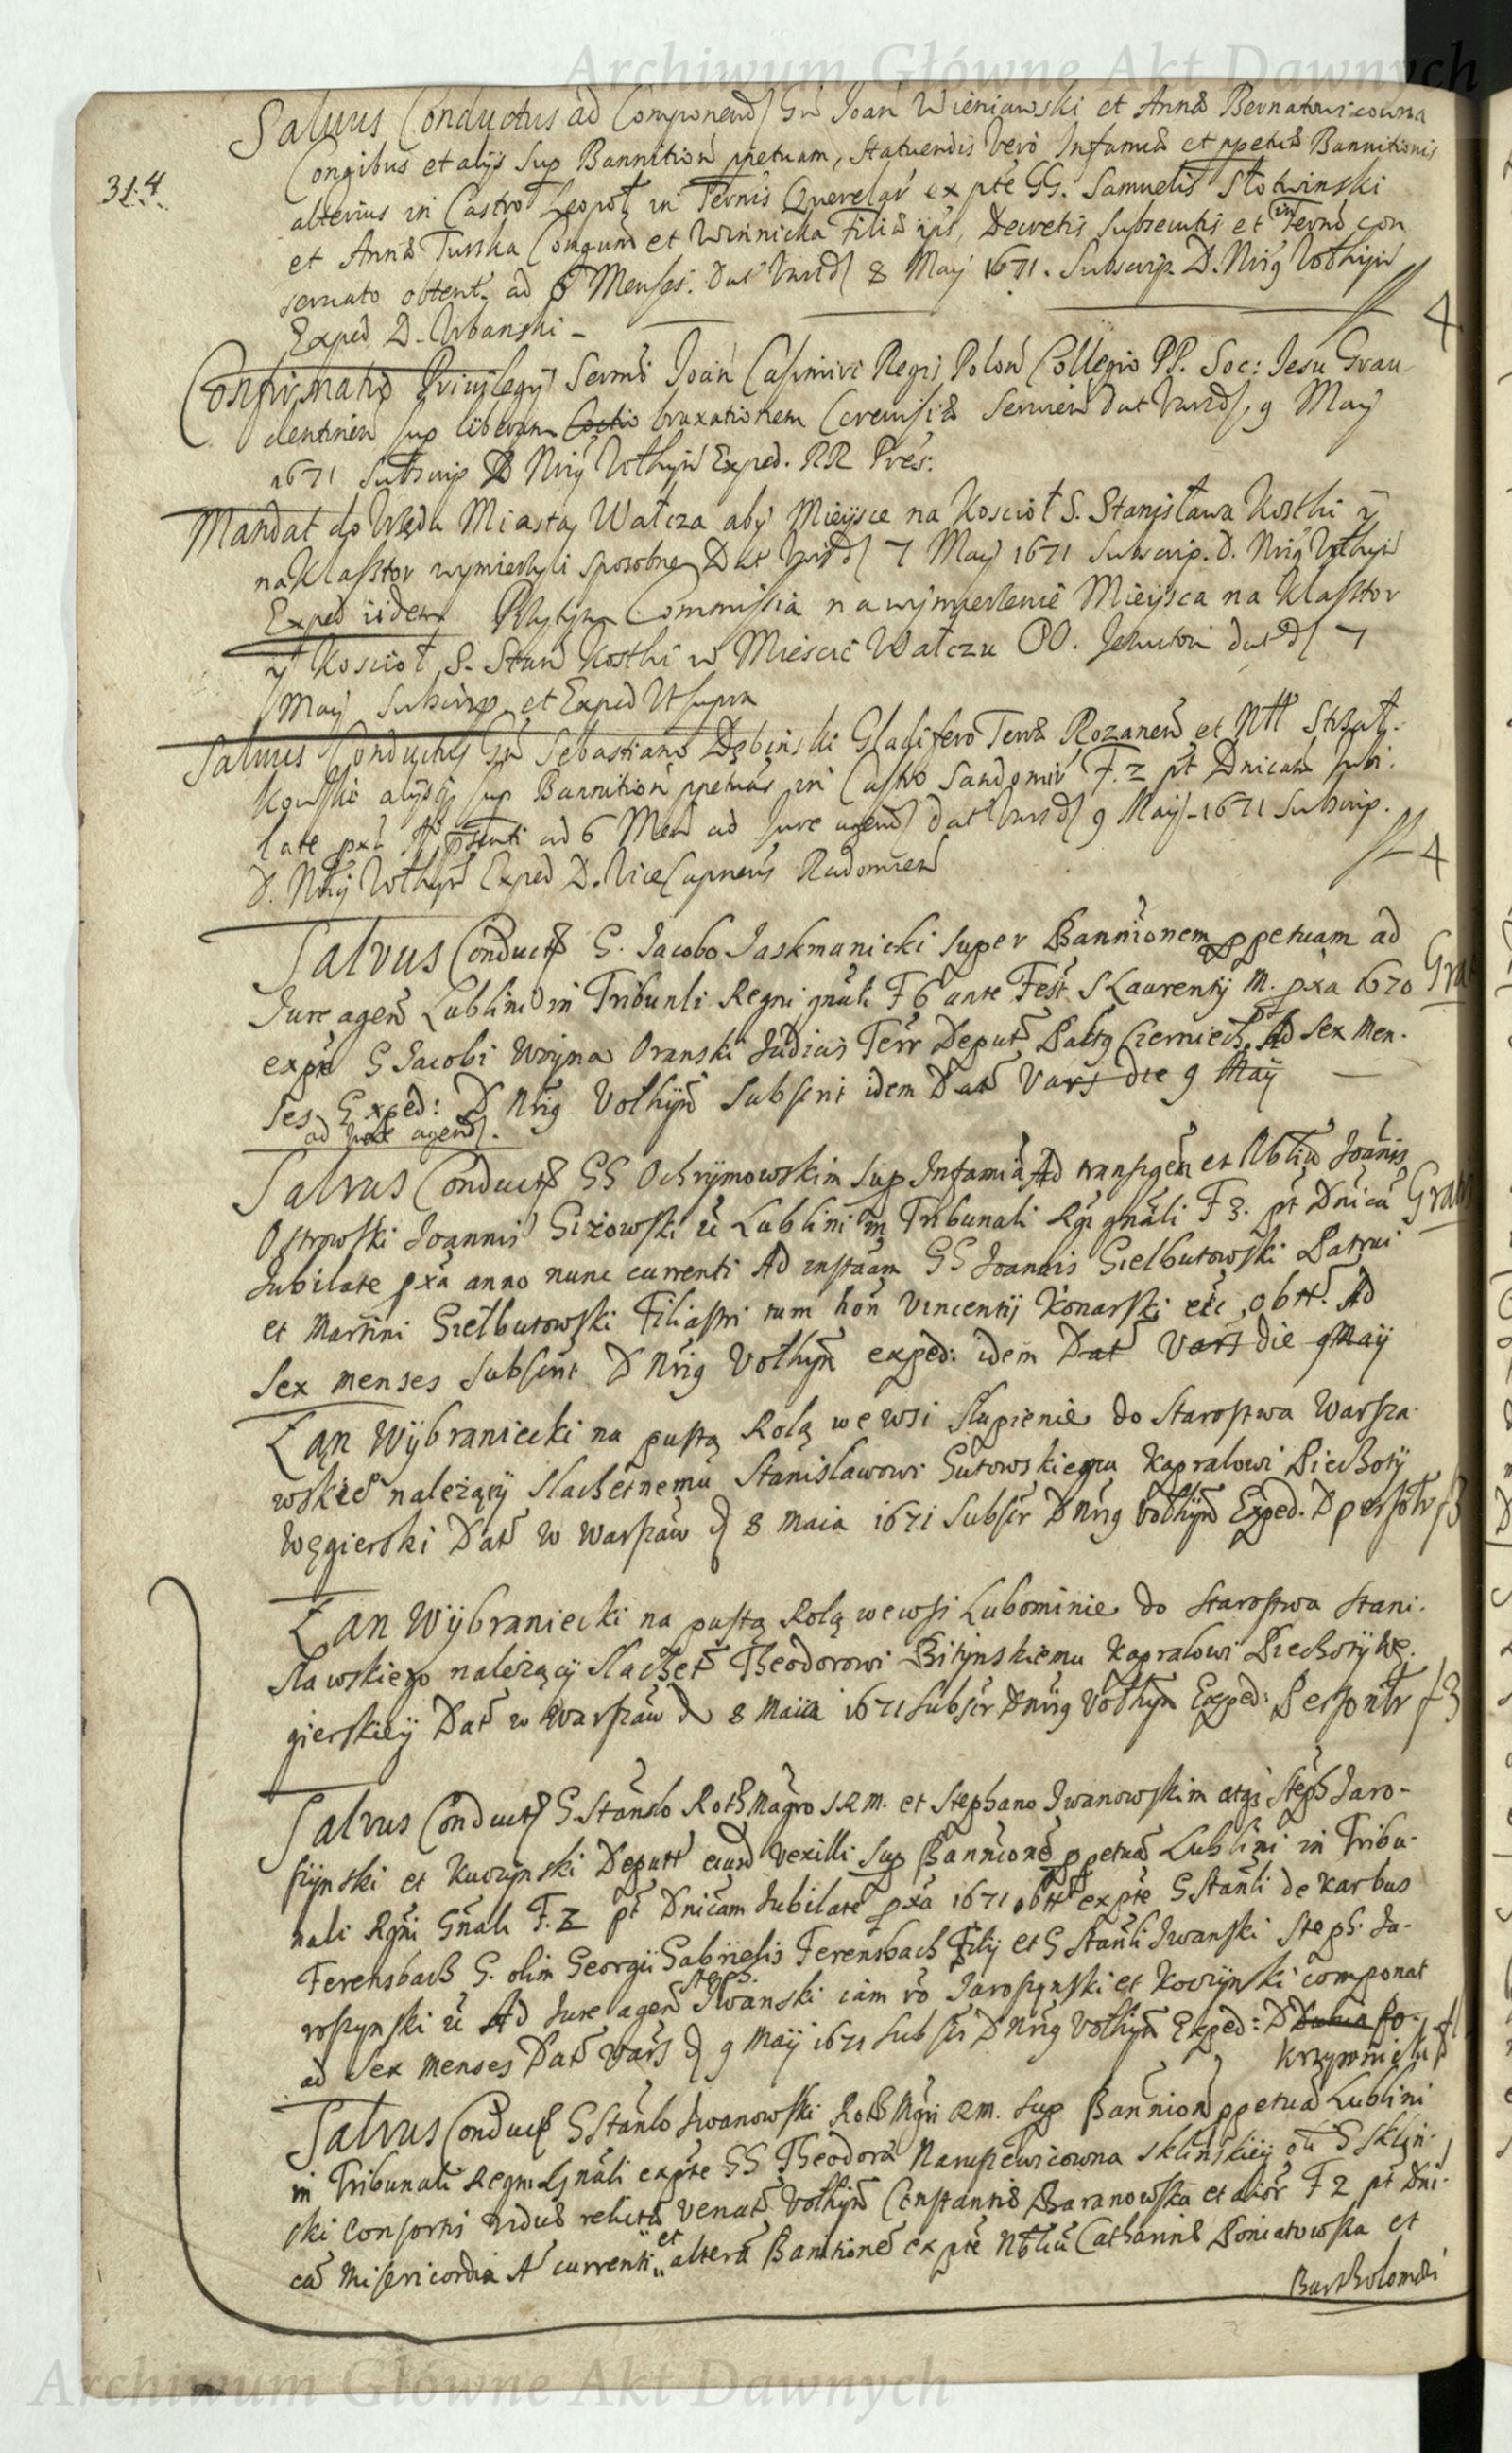 Archiwum Główne Akt Dawnych
Salvus Conductus ad Componend Gn Joan Wieniawski et Annæ Bernatowicowna
Congibus et alys sup Bannition ppetuam, statuendis vero Infamiæ et ppetuæ Bannitionis
31.4.
alterius in Castro Leopol in Ternis Querelar ex pte GG. Samuelis Słotwinski
et Annæ Turska Congum et Winnicka Filiæ ips, Decretis subsecutis et in Termo con
servato obtent. ad 6 Menses. Dat Vars d 8 May 1671. Subscrip D. Nrig Vołhyn
Exped D. Urbanski - 4
Confirmatio Privilegy Sermi Joan Casimiri Regis Polon Collegio PP. Soc: Jesu Grau
dentinen sup liberam Coctio braxationem Cerevisiæ servien Dat Vars d, 9 May
1671 Subscrip D Nrig Vołhyn Exped. RR Pres:
Mandat do Urzędu Miasta Wałcza aby Mieysce na Kosciół S. Stanisława Kostki y
na Klasztor wymierzyli sposobne Dat Vars d 7 May 1671 Subscrip. D. Nrig Vołhyn
Exped iidem Commissia na wymierzenie Mieysca na Klasztor
y Kosciół S. Stan Kostki w Miescie Wałczu OO. Jezuitom dat d 7
May Subscrip. et Exped Ut supra
Salvus Conductus Gn Sebastiano Dębinski Gladifero Terræ Rozanen et Ntt Strzał-
kowski alysq sup Bannition ppetuas in Castro Sandomir F. 2 pt Dnicam Jubi-
late pxa Ao psenti ad 6 Men ad Jure agend Dat Vars d 9 May 1671 Subscrip.
D. Nrig Vołhyn Exped D. ViceCapneus Radomien 4
Salvus Conduct G. Jacobo Jaskmanicki super Bannionem ppetuam ad
Jure agen Lublini in Tribunli Regni gnali F 6 ante Fest S Laurentij M. pxa 1670 Gra
expte G Jacobi Woyna Oranski Judicis Terr Deput Paltus Czerniech. Ad sex Men-
ses Exped: D Nrig Vołhyn Subscri idem Dat Vars die 9 Maij
ad Jure agend.
Salvus Conduct GG Ochrymowskim sup Infamia Ad transigen et Nbliu Joanis
Ostrowski Joannis Gizowski ec Lublini in Tribunali Rgi gnali F 3. pt Dnica Gra
Jubilate pxa anno nunc currenti Ad instaam GG Joannis Giełbutowski Patrui
et Martini Giełbutowski Filiastri tum hon Vincentij Konarski etc. obtt. Ad
sex menses Subscri D Nrig Vołhyn exped: idem Dat Vars die 9 Maij
Łan Wybraniecki na pustą Rolą we wsi Słupienie do Starostwa Warsza-
wskie należący Slachetnemu Stanisławowi Gutowskiemu Kapralowi Piechoty
Węgierski Dat w Warszaw d 8 Maia 1671 Subscr D Nrig Vołhyn Exped. D
Łan Wybraniecki na pustą Rolą we wsi Lubominie do Starostwa Stani-
sławskiego należący Slachet Theodorowi Bitynskiemu Kapralowi Piechoty Wę-
gierskiey Dat w Warszaw d 8 Maia 1671 Subscr D Nrig Vołhyn Exped:
Salvus Conduct G Stanlo RothMagro SRM. et Stephano Iwanowskim atq Steph Jaro-
szynski et Kuczynski Deputt eiusd vexilli sup Bannione ppetua Lublini in Tribu-
nali Rgni Gnali F. 2 pt Dnicam Jubilate pxa 1671 obtt expte G Stanli de Karbus
Ferensbach G. olim Georgii Gabrielis Ferensbach Filij et G Stanli Iwanski Steph. Ja-
roszynski ec Ad Jure agen Steph. Iwanski iam vo Jaroszynski et Koczynski componat
ad sex menses Dat Vars d 9 Maij 1671 Subscri D Nrig Vołhyn Exped: D
Krzypnicki
Salvus Conduct G Stanlo Iwanowski RothMgri RM. sup Bannion ppetua Lublini
in Tribunali Regni Gnali expte GG Theodora Naruszewicowna Sklinskiey oli G Sklin-
ski Consortis viduæ relictæ Venat Vołhyn Constantiæ Baranowska et alior F 2 pt Dni-
ca Misericordia Ao currenti et altera Banitione expte Nbliu Catharinæ Poniatowska et
Bartholomæi
Archiwum Główne Akt Dawnych